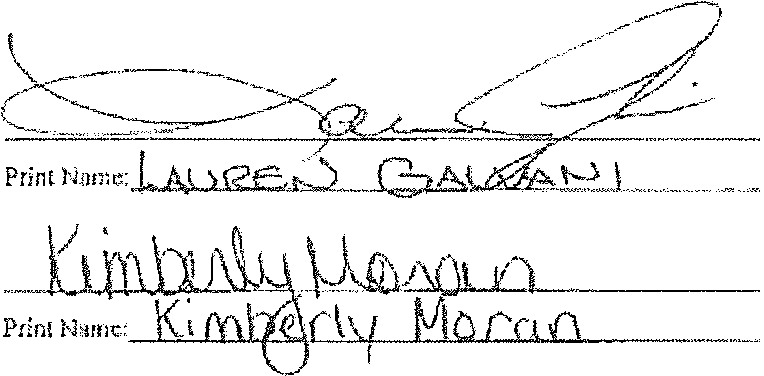 Print Name: LAUREN GALVANI
Kimberly Moran
Print Name: Kimberly Moran